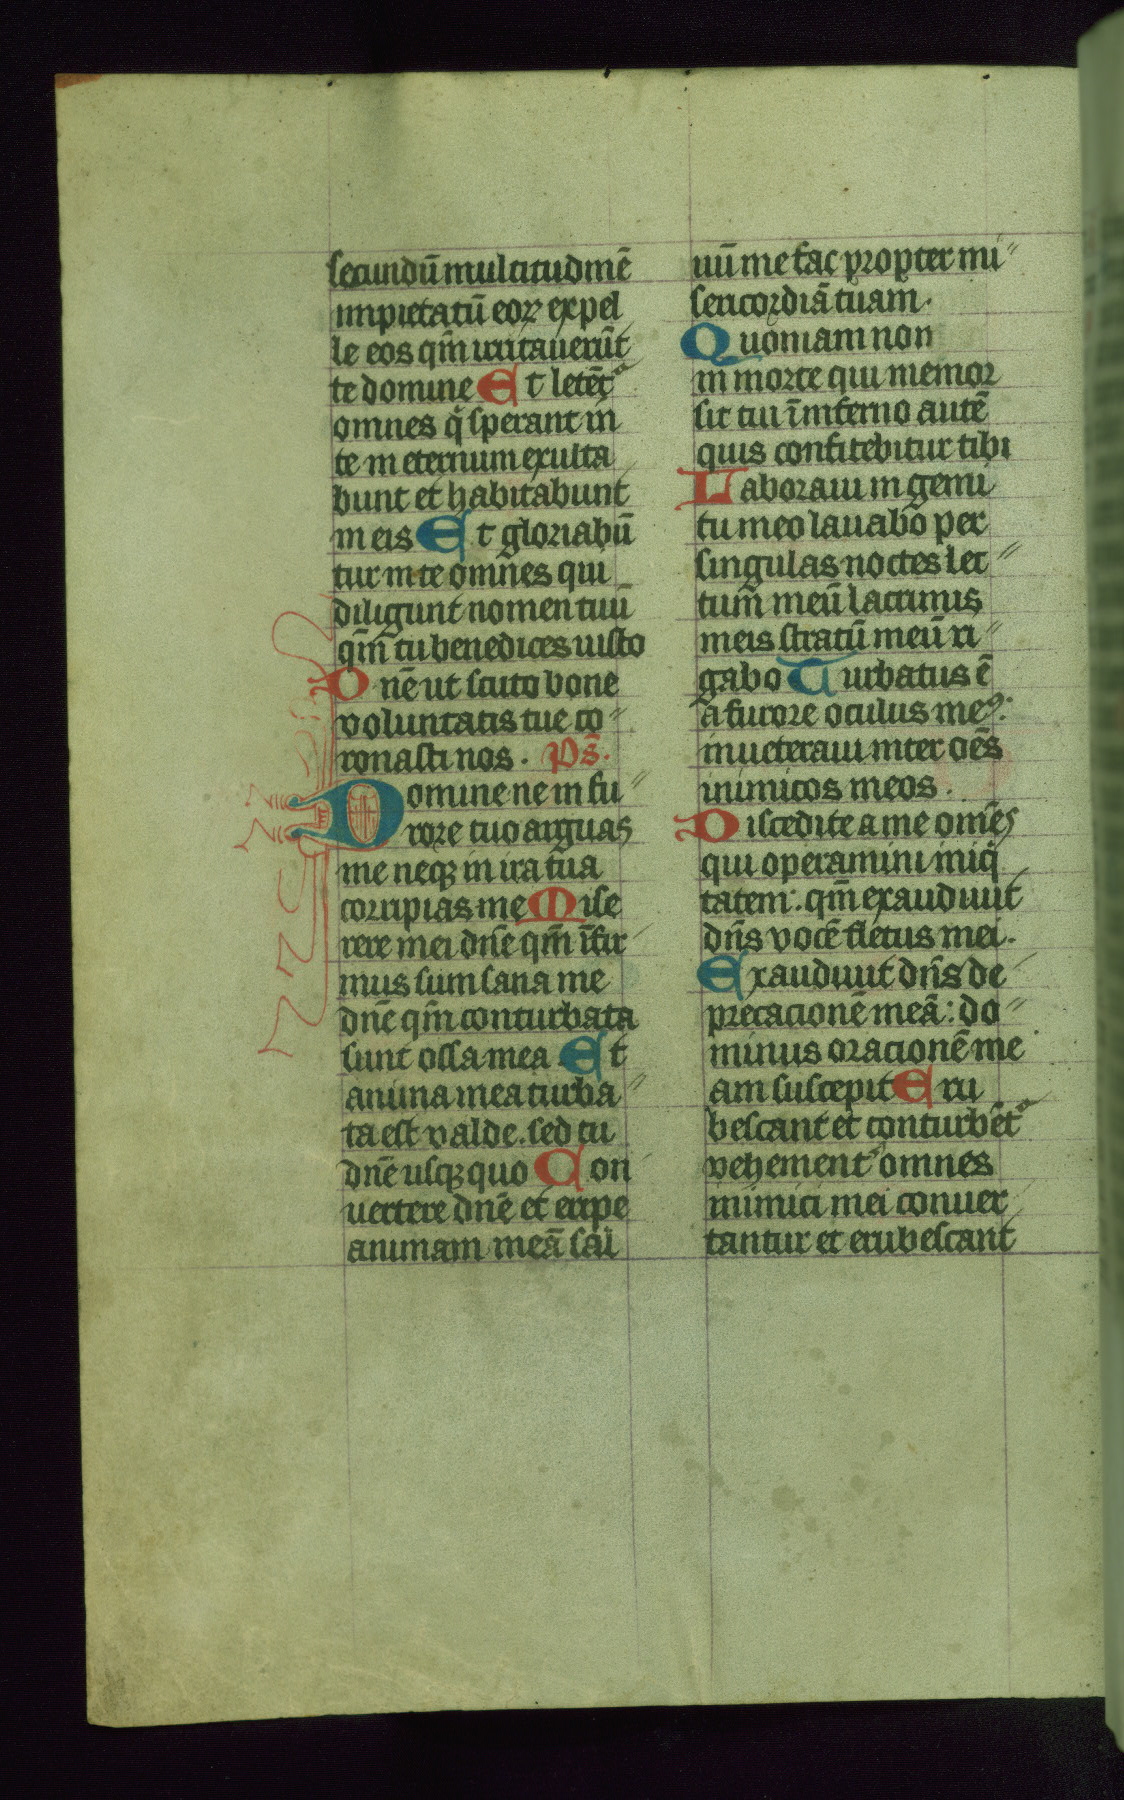 secundū multitudinē
impietatū eoꝝ expel
le eos qm̄ irritauerūt
te domine Et letēt᷑
omnes q̇ sperant in
te in eternum exulta
bunt et habitabunt
in eis Et gloriabū
tur in te omnes qui
diligunt nomen tuū
qm̄ tu benedices iusto
Dn̄e ut scuto bone
voluntatis tue co〃
ronasti nos. Ps̄.
Domine ne in fu〃
rore tuo arguas
me neqꝫ in ira tua
corripias me Mise
rere mei dn̄e qm̄ īfir
mus sum sana me
dn̄e qm̄ conturbata
sunt ossa mea Et
anima mea turba〃
ta est valde. sed tu
dn̄e usqꝫ quo Con
uertere dn̄e et eripe
animam meā sal
uū me fac propter mi〃
sericordiā tuam.
Quoniam non
in morte qui memor
sit tui īinferno autē
quis confitebitur tibi
Laboraui in gemi
tu meo lauabo per
singulas noctes lec〃
tum̄ meū lacrimis
meis stratū meū ri〃
gabo Turbatus ē
a furore oculus meꝰ:
inueteraui inter oēs
inimicos meos.
Discedite a me om̄es
qui operamini iniq̇
tatem: qm̄ exaudiuit
dn̄s vocē fletus mei.
Exaudiuit dn̄s de
precacionē meā: do〃
minus oracionē me
am suscepit Eru
bescant et conturbēt᷑
vehement᷑ omnes
inimici mei conuer
tantur et erubescant